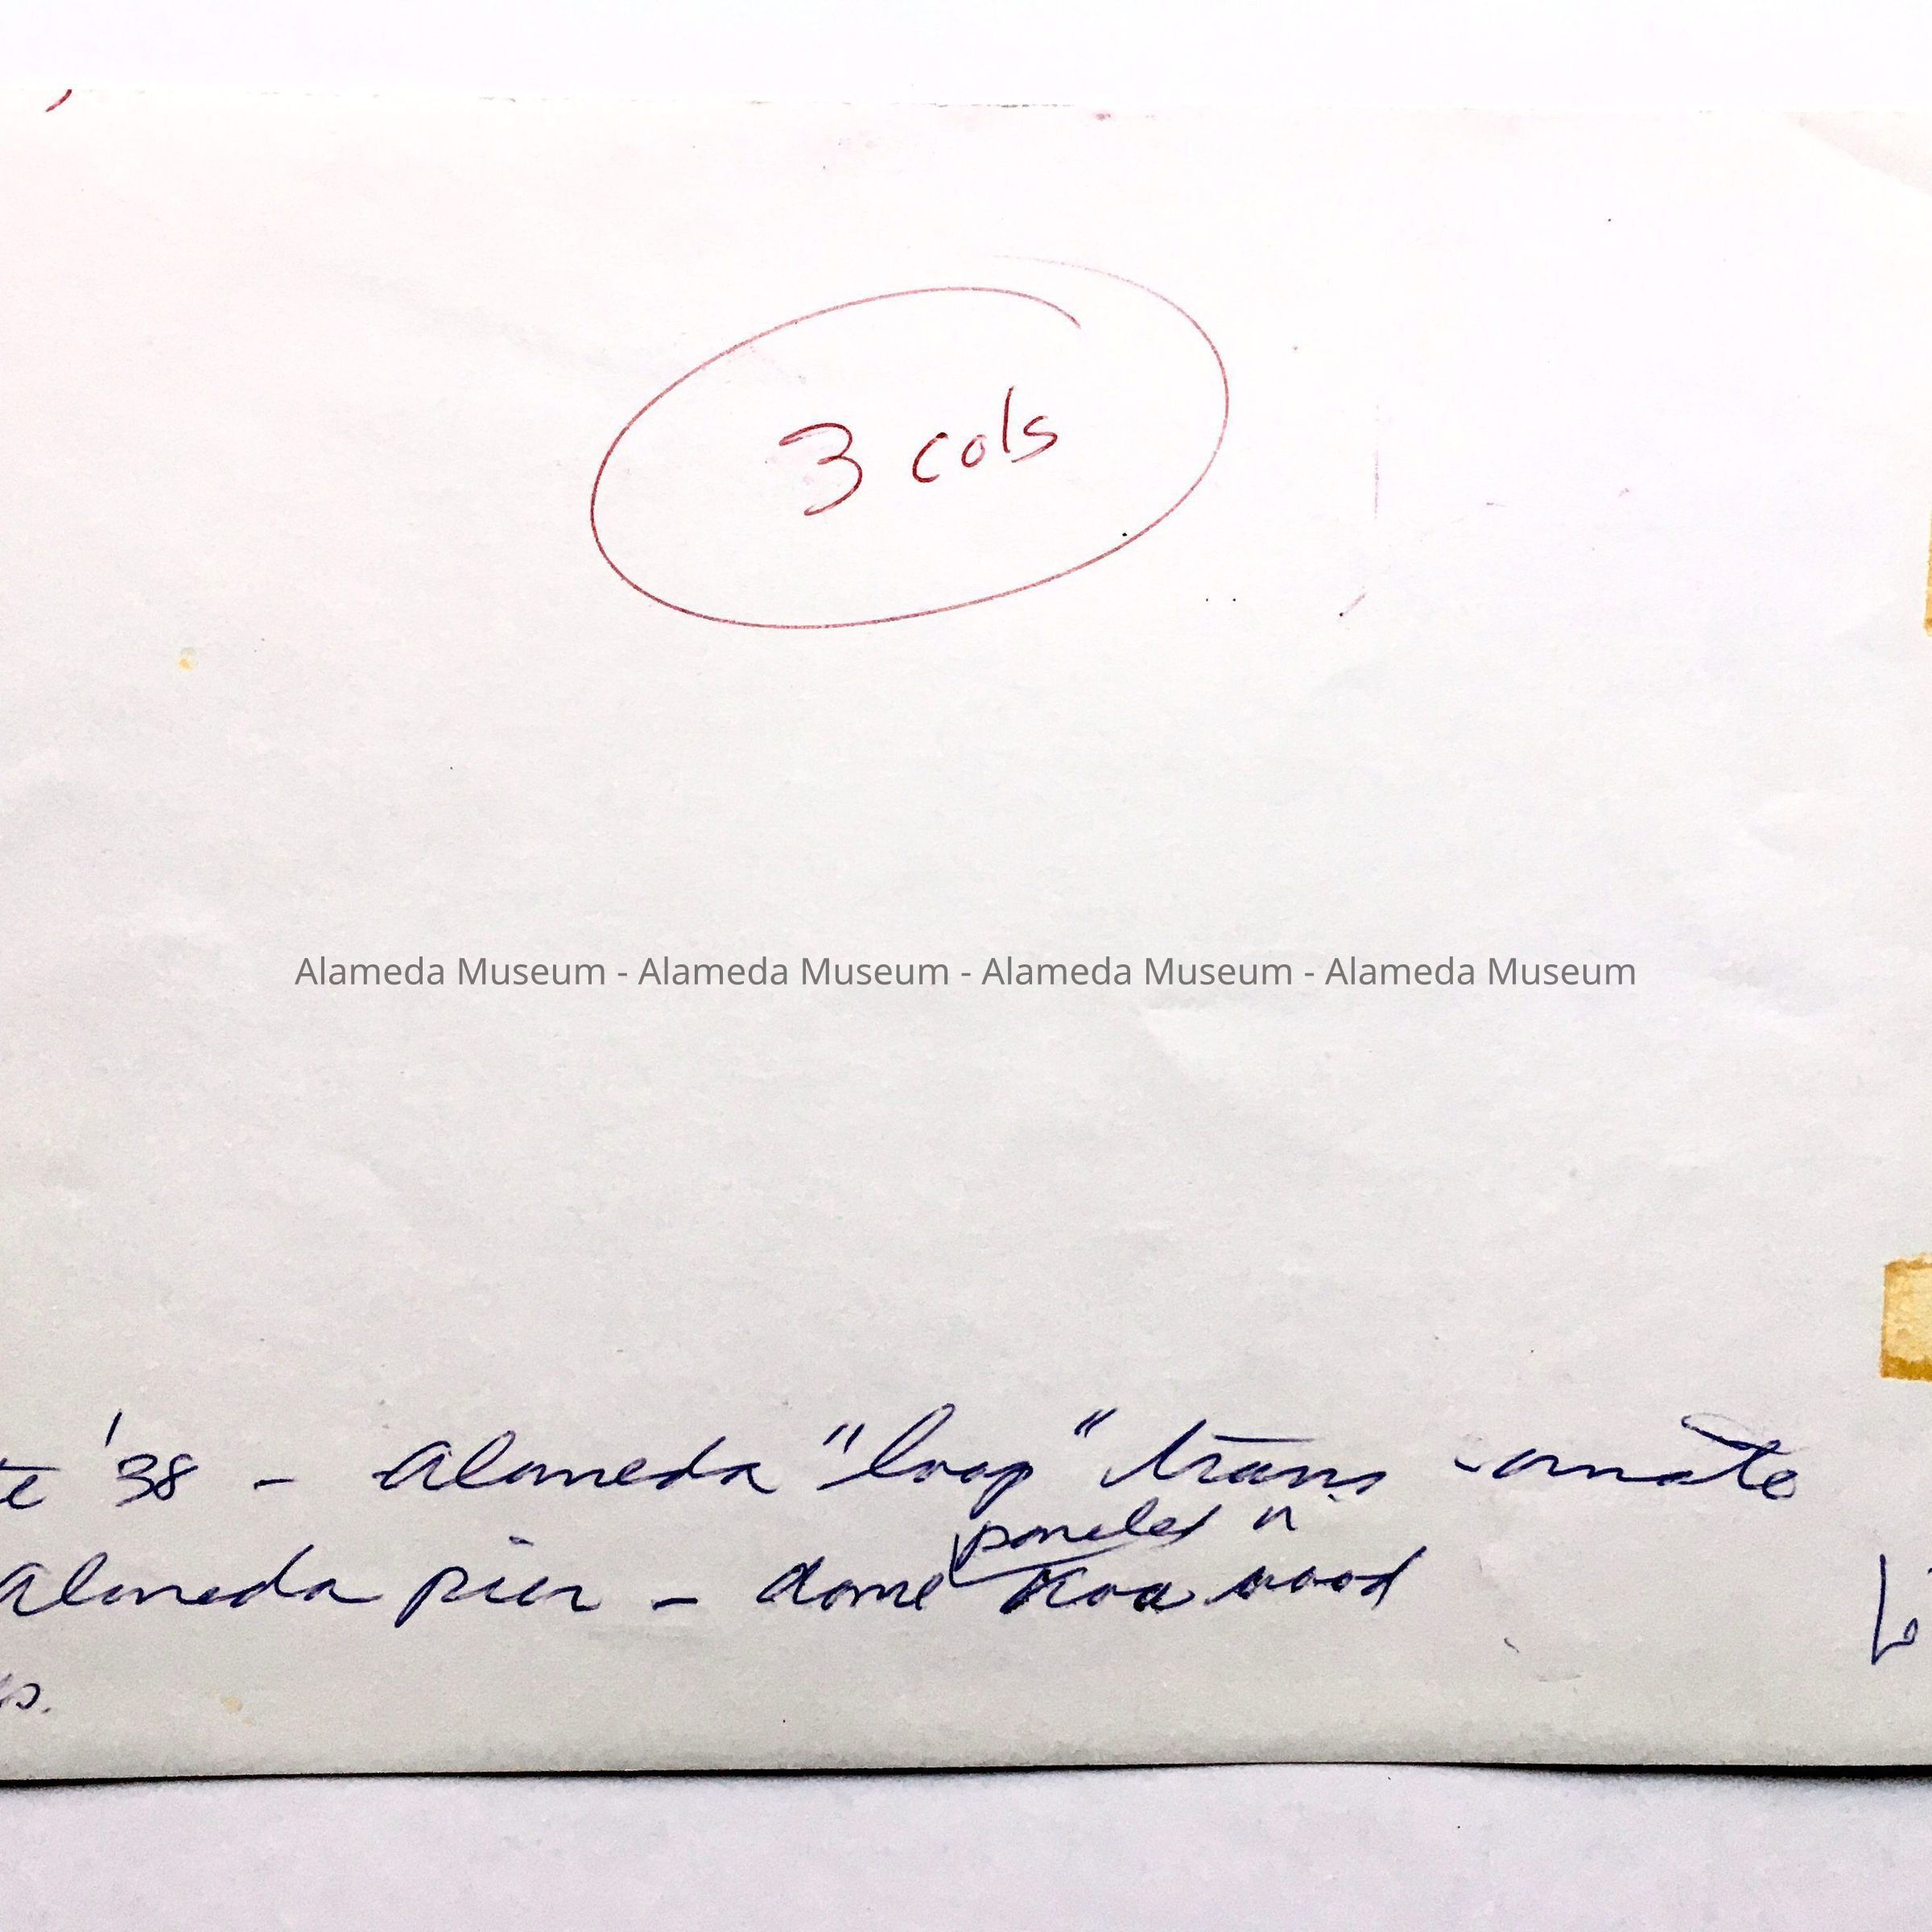 3 cols
Alameda Museum - Alameda Museum - Alameda Museum - Alameda Museum
'38 - Alameda "loop" trains - ornate
paneled in
Alameda pier - dome Koa wood